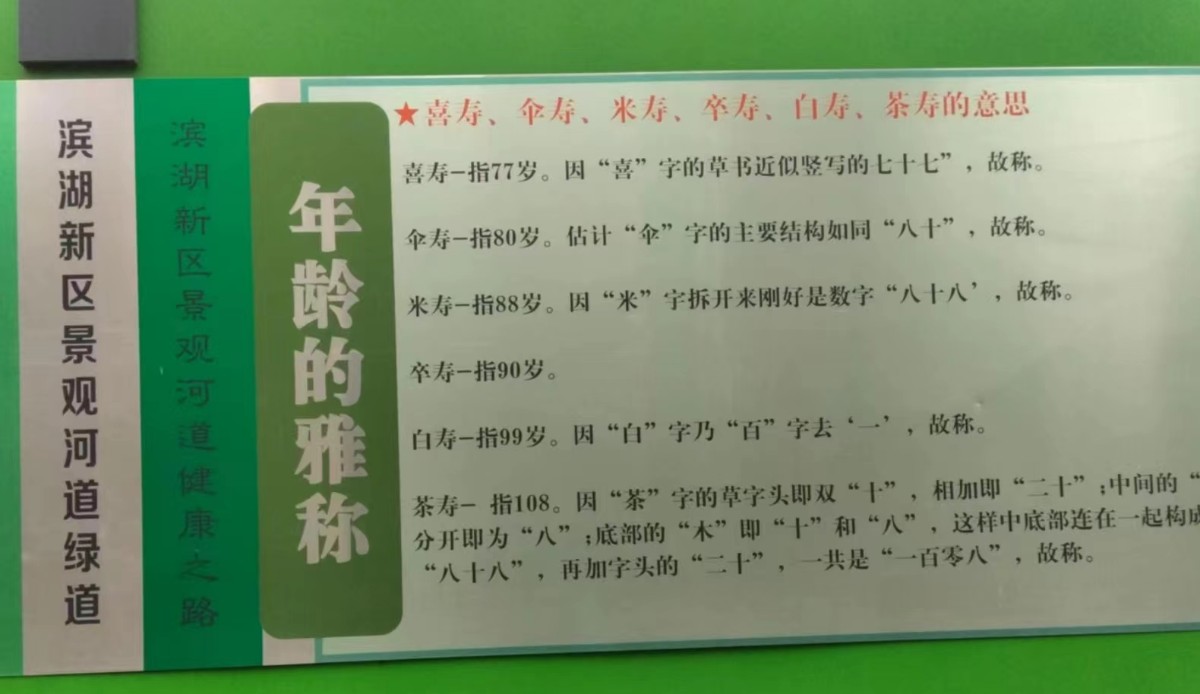 滨湖新区景观河道绿道
滨湖新区景观河道健康之路
年龄的雅称
★喜寿、伞寿、米寿、卒寿、白寿、茶寿的意思
喜寿-指77岁。因“喜”字的草书近似竖写的七十七”，故称。
伞寿-指80岁。估计“伞”字的主要结构如同“八十”，故称。
米寿-指88岁。因“米”字拆开来刚好是数字“八十八’，故称。
卒寿-指90岁。
白寿-指99岁。因“白”字乃“百”字去‘一’，故称。
茶寿- 指108。因“茶”字的草字头即双“十”，相加即“二十”;中间的“
分开即为“八”;底部的“木”即“十”和“八”，这样中底部连在一起构成
“八十八”，再加字头的“二十”，一共是“一百零八”，故称。